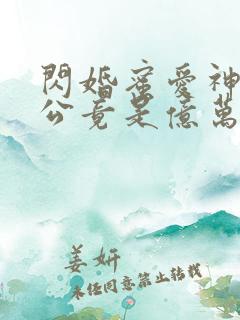 閃婚蜜愛神
公竟是億萬
姜妍
未經同意禁止轉載